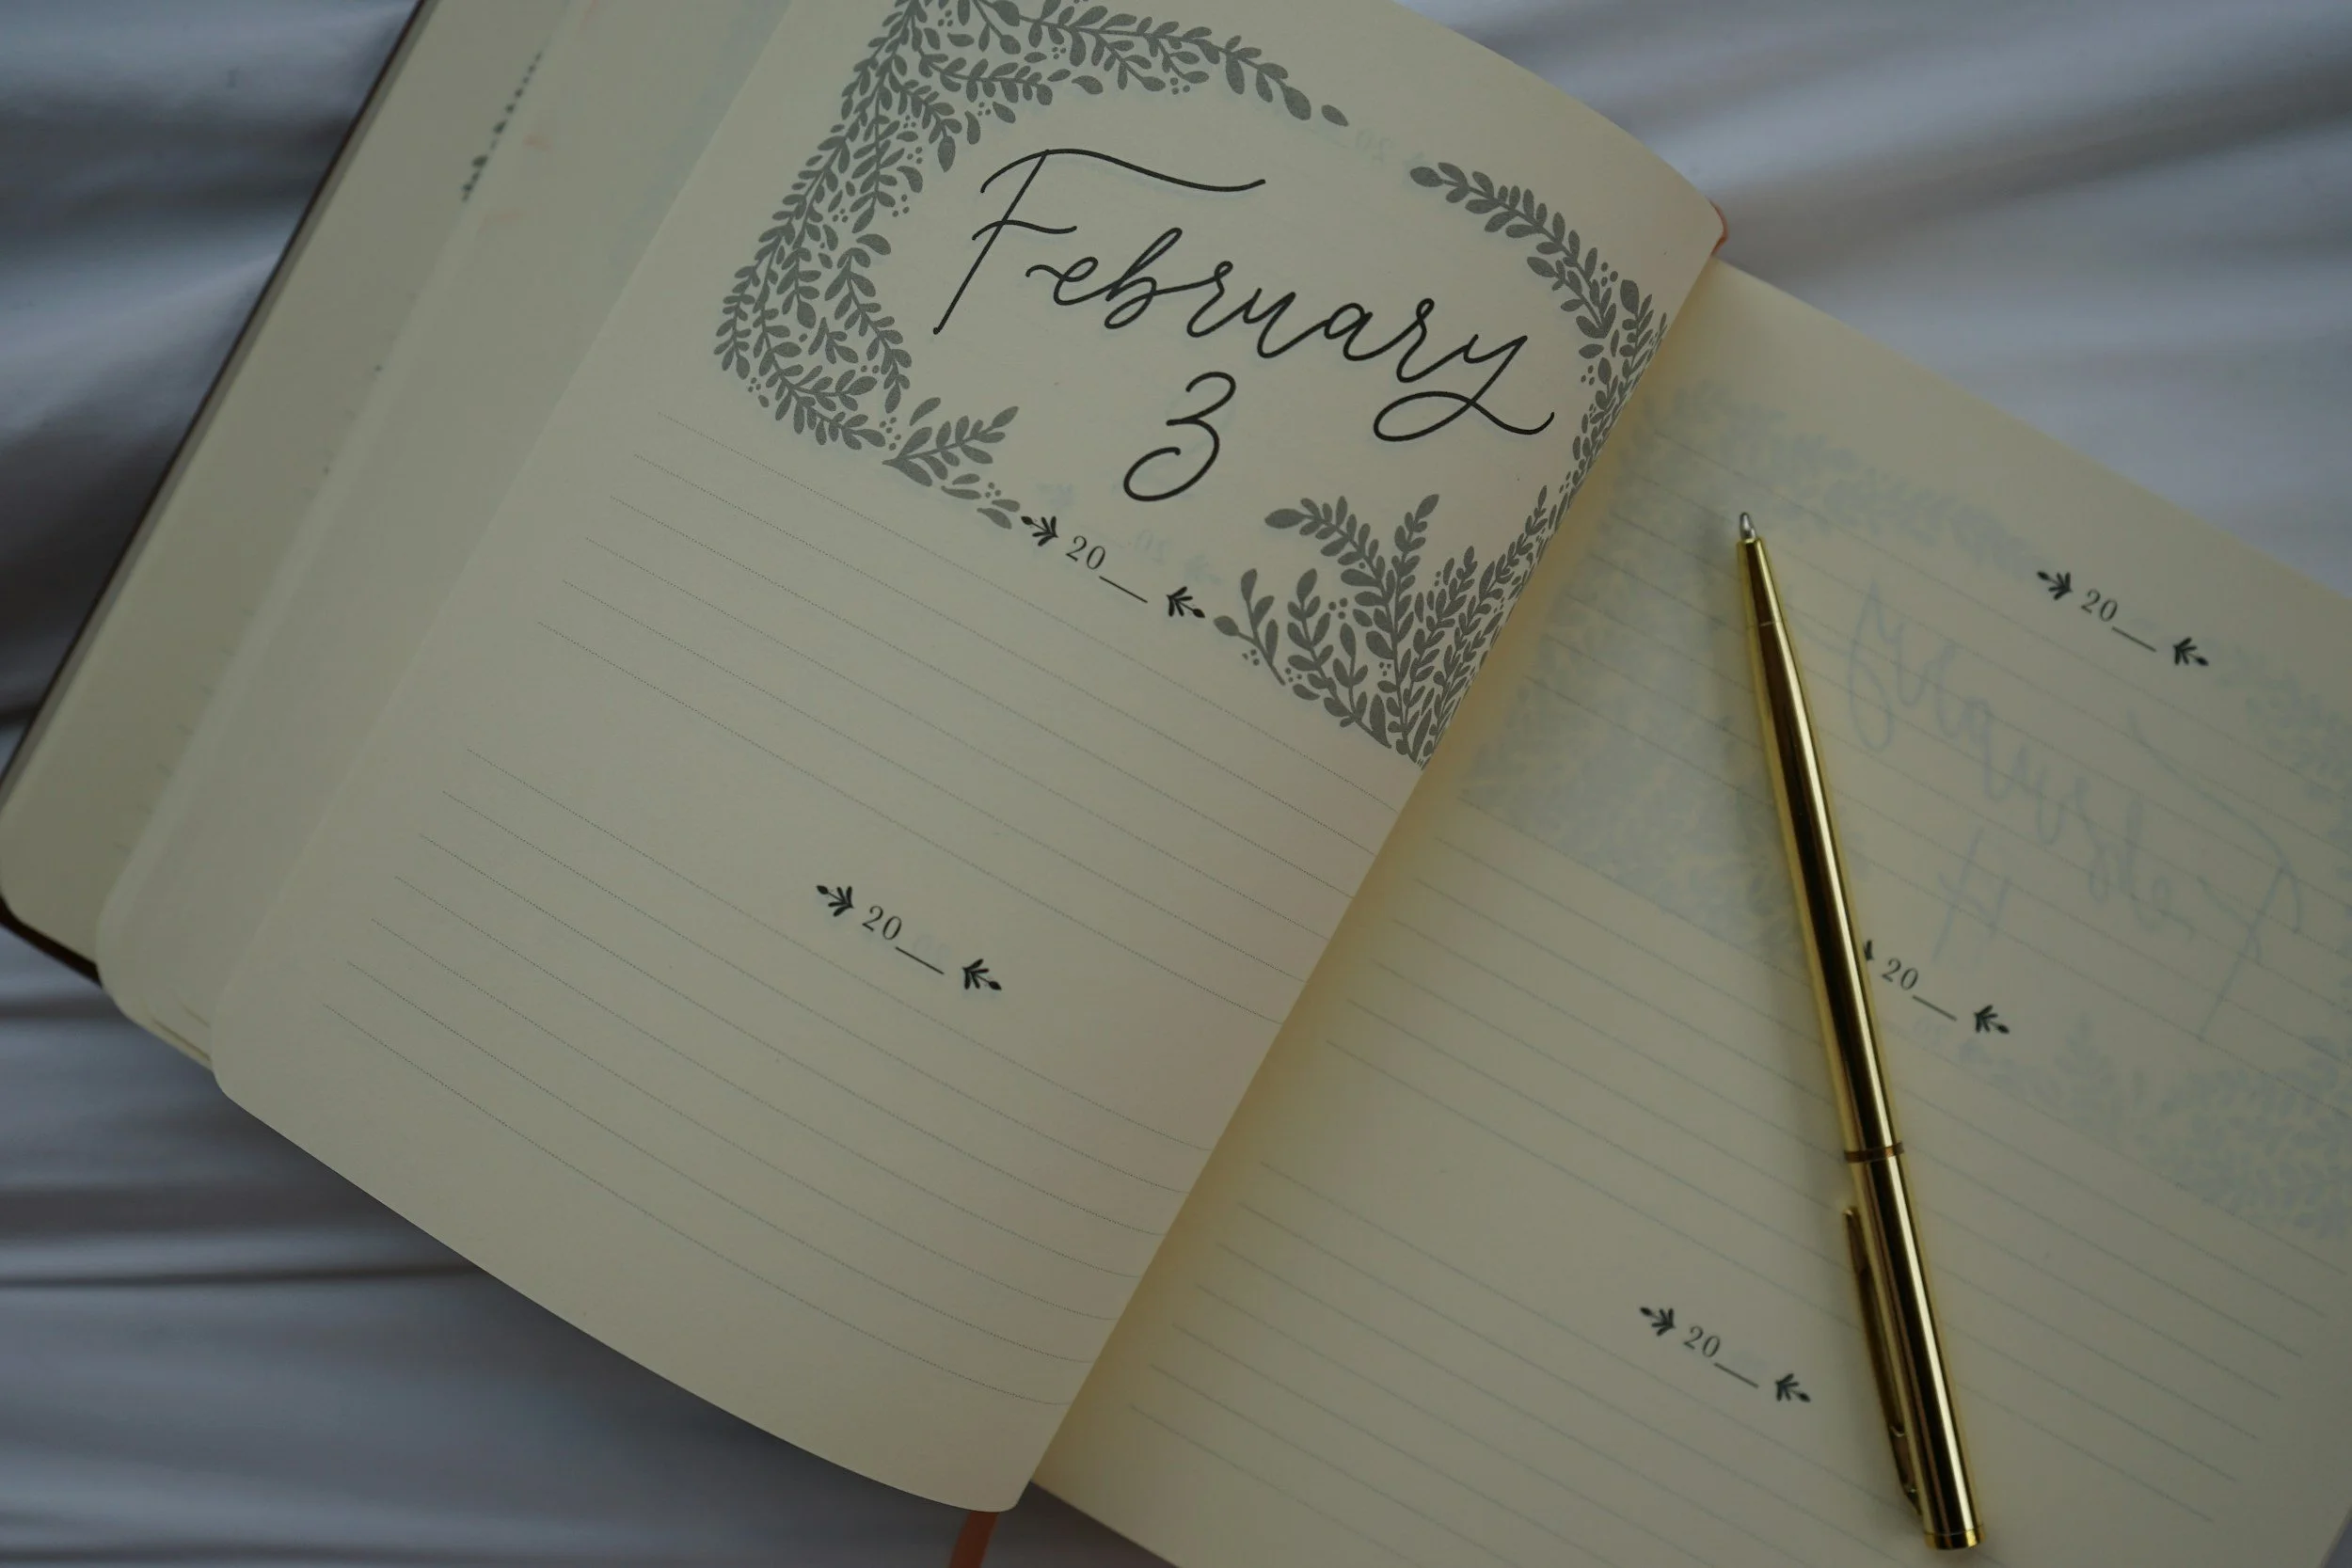 February
3
20__
20__
20__
20__
20__